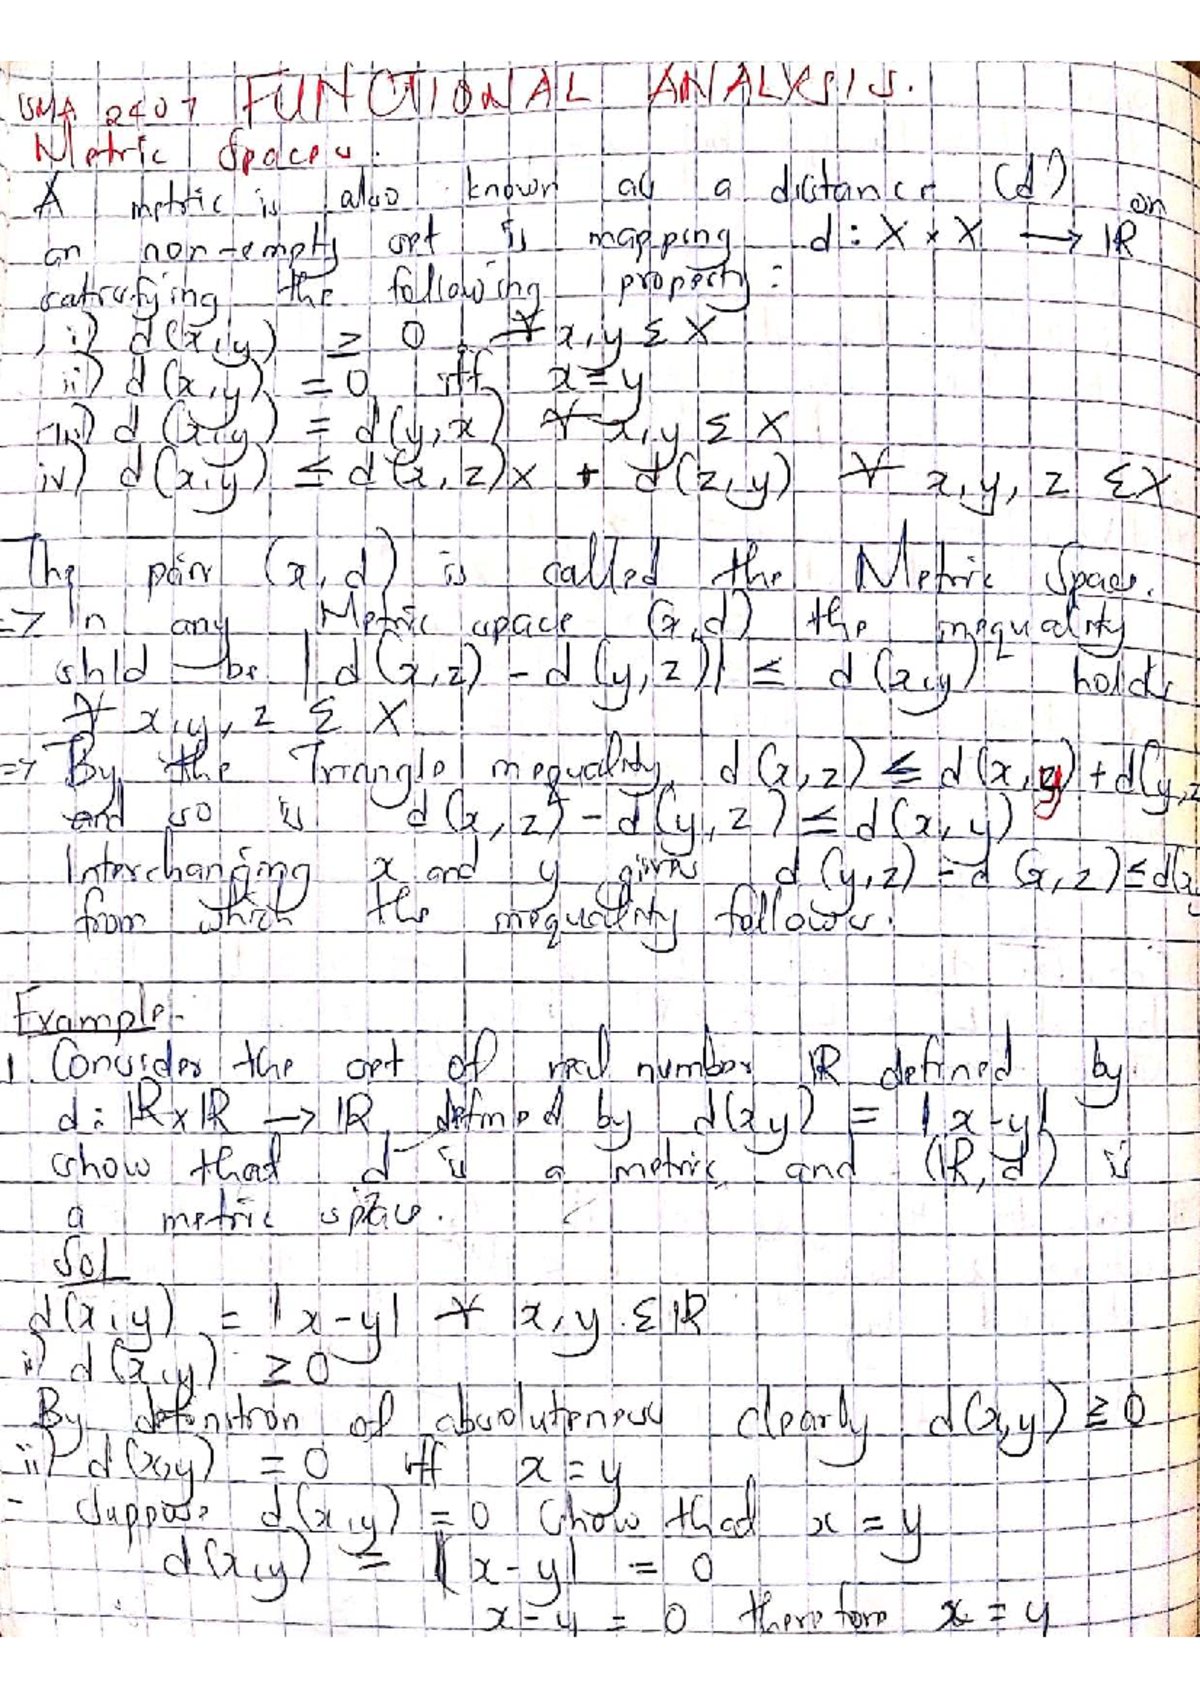 SMA 2407 FUNCTIONAL ANALYSIS.
Metric Spaces.
A metric is also known as a distance (d) on
an non-empty set is mapping d : X × X → ℝ
satisfying the following property:
i) d(x,y) ≥ 0 ∀ x,y Σ X
ii) d(x,y) = 0 iff x = y
iii) d(x,y) = d(y,x) ∀ x,y Σ X
iv) d(x,y) ≤ d(x,z)x + d(z,y) ∀ x,y,z Σ X
The pair (x,d) is called the Metric Space.
=> In any Metric space (x,d) the inequality
shld be |d(x,z) - d(y,z)| ≤ d(x,y) holds
∀ x,y,z Σ X
=> By the Triangle inequality d(x,z) ≤ d(x,y) + d(y,z
and so is d(x,z) - d(y,z) ≤ d(x,y)
Interchanging x and y gives d(y,z) - d(x,z) ≤ d(x,
from which the inequality follows.
Example.
1. Consider the set of real number ℝ defined by
d: ℝ×ℝ → ℝ defined by d(x,y) = |x-y|
show that d is a metric and (ℝ,d) is
a metric space.
Sol
d(x,y) = |x-y| ∀ x,y Σ ℝ
i) d(x,y) ≥ 0
By definition of absoluteness clearly d(x,y) ≥ 0
ii) d(x,y) = 0 iff x = y
- Suppose d(x,y) = 0 show that x = y
d(x,y) = |x-y| = 0
x-y = 0 therefore x = y